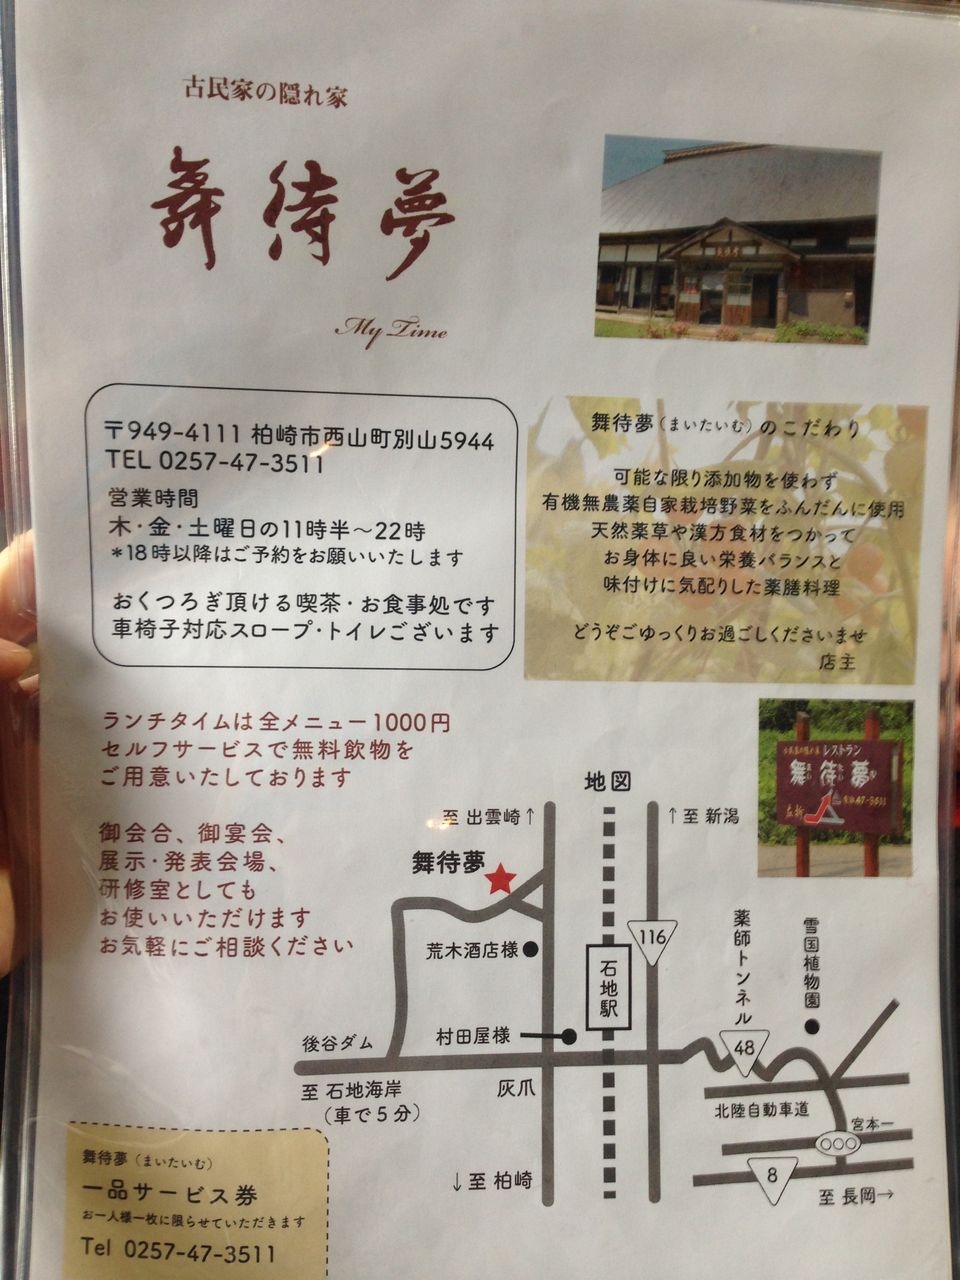 古民家の隠れ家
舞待夢
My Time
〒949-4111 柏崎市西山町別山5944
TEL 0257-47-3511
営業時間
木・金・土曜日の11時半〜22時
*18時以降はご予約をお願いいたします
おくつろぎ頂ける喫茶・お食事処です
車椅子対応スロープ・トイレございます
舞待夢(まいたいむ)のこだわり
可能な限り添加物を使わず
有機無農薬自家栽培野菜をふんだんに使用
天然薬草や漢方食材をつかって
お身体に良い栄養バランスと
味付けに気配りした薬膳料理
どうぞごゆっくりお過ごしくださいませ
店主
ランチタイムは全メニュー1000円
セルフサービスで無料飲物を
ご用意いたしております
御会合、御宴会、
展示・発表会場、
研修室としても
お使いいただけます
お気軽にご相談ください
レストラン
舞待夢
左折
47-3511
地図
至 出雲崎↑
↑至 新潟
舞待夢
荒木酒店様
116
石地駅
薬師トンネル
雪国植物園
村田屋様
後谷ダム
48
至 石地海岸
(車で5分)
灰爪
北陸自動車道
宮本一
8
↓至 柏崎
至 長岡→
舞待夢(まいたいむ)
一品サービス券
お一人様一枚に限らせていただきます
Tel 0257-47-3511